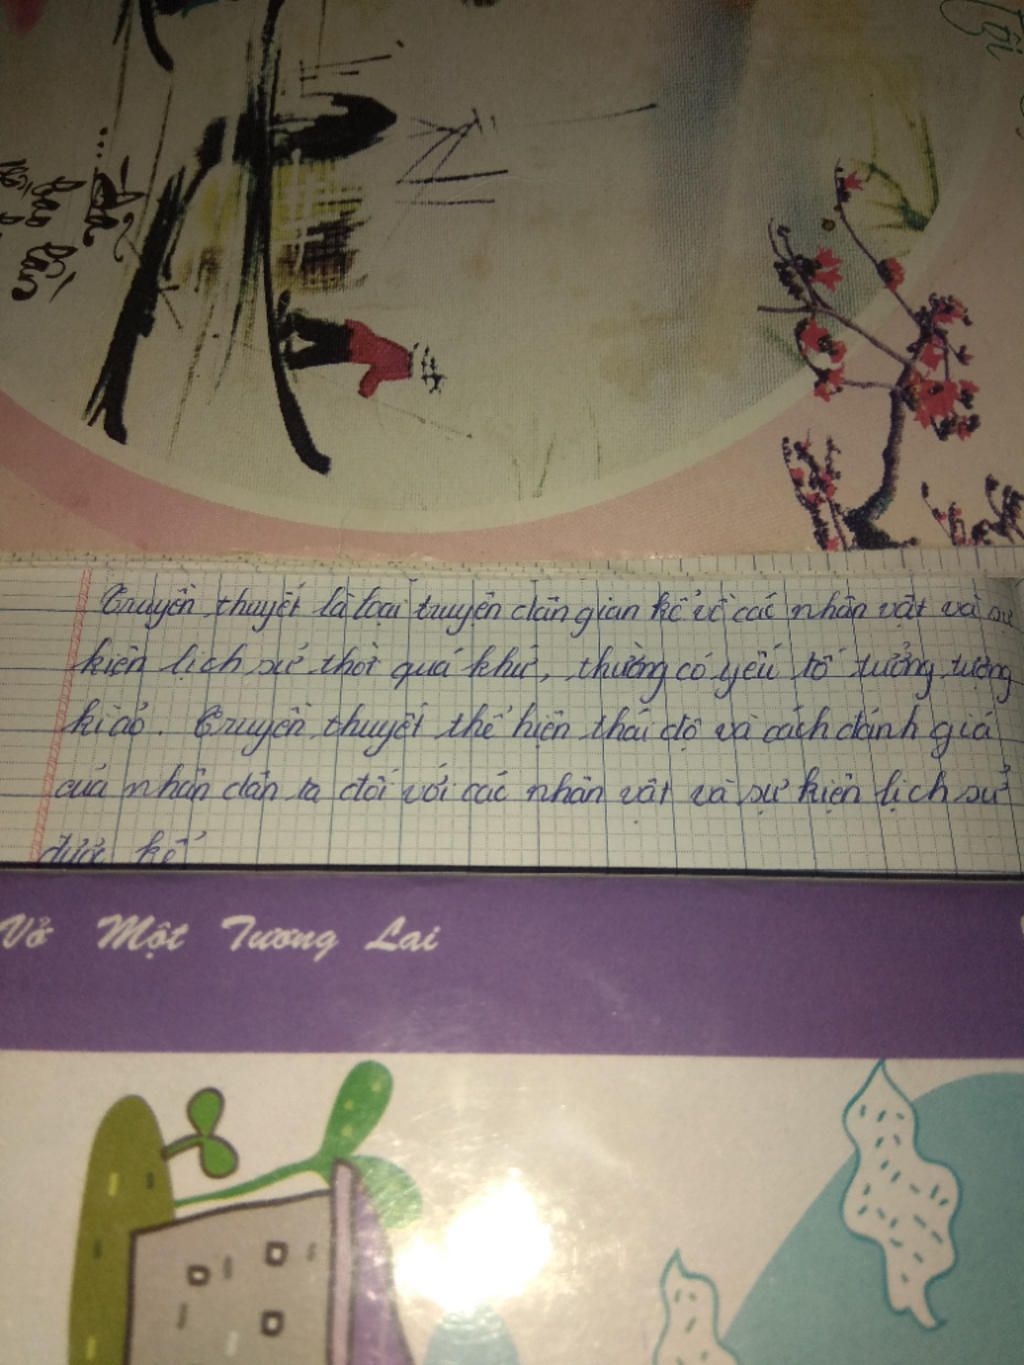 Tôi
...
Truyền thuyết là loại truyện dân gian kể về các nhân vật và sự
kiện lịch sử thời quá khứ, thường có yếu tố tưởng tượng
kì ảo. Truyền thuyết thể hiện thái độ và cách đánh giá
của nhân dân ta đối với các nhân vật và sự kiện lịch sử
được kể
Vở Một Tương Lai